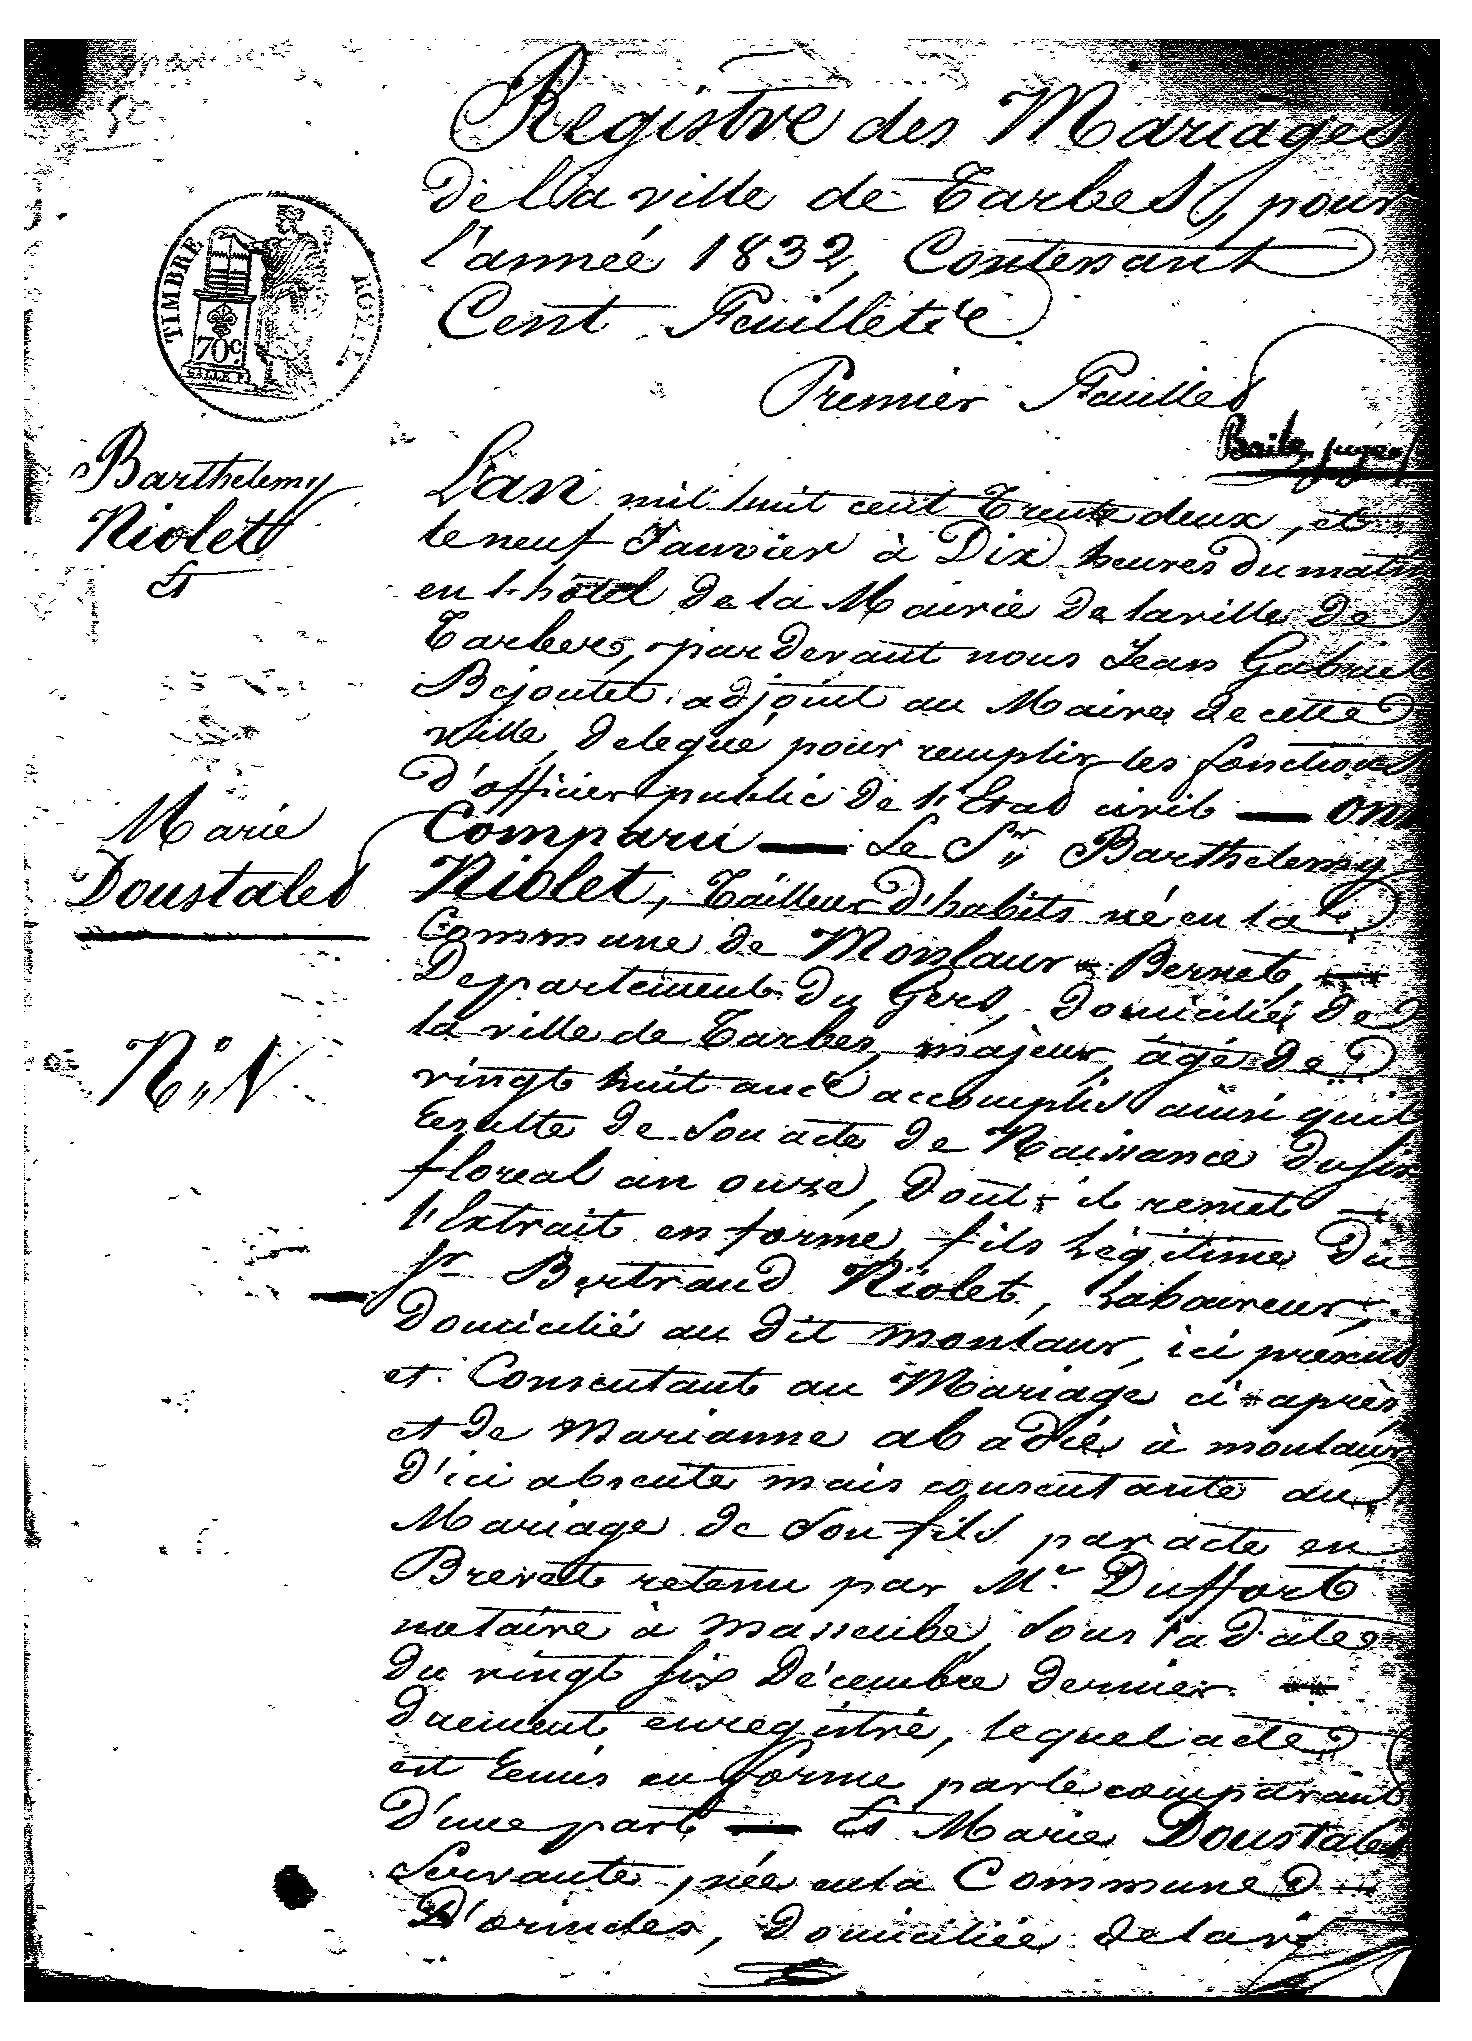 Registre des Mariages
de la ville de Tarbes, pour
l'année 1832, Contenant
Cent Feuillets
Premier Feuillet
TIMBRE ROYAL
70c
Barthelemy
Niolet
et
Marie
Doustalet
N.° 1
L'an mil huit cent Trente deux, et
le neuf Janvier à Dix heures du matin
en l'hôtel de la Mairie de la ville de
Tarbes, par devant nous Jean Gabriel
Bejoutet adjoint au Maire de cette
ville, delegué pour remplir les fonctions
d'officier public de l'Etat civil — ont
Comparu — Le Sr Barthelemy
Niolet, Tailleur d'habits né en la
Commune de Monlaur = Bernet,
Departement du Gers, domicilié de
la ville de Tarbes, majeur, agé de
vingt huit ans accomplis ainsi qu'il
Resulte de son acte de Naissance du six
floreal an onze, dont il remet
l'Extrait en forme, fils légitime du
sr Bertrand Niolet, Laboureur,
Domicilié au dit monlaur, ici présent
et Consentant au Mariage ci=après,
et de Marianne abadie à monlaur
d'ici absente mais consentante au
Mariage de son fils par acte en
Brevet retenu par Mr. Duffort
notaire à masseube, sous la date
du vingt six Décembre dernier
duement enregistré, lequel acte
est Remis en forme par le comparant
D'une part — Et Marie Doustalet
Servante, née en la Commune
D'orincles, domiciliée de la vi